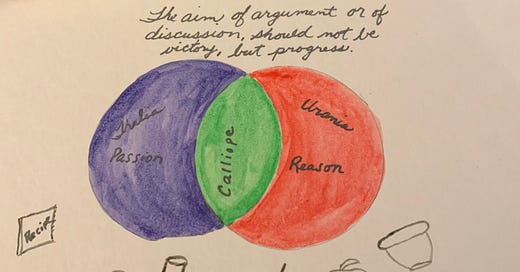 The aim of argument or of
discussion, should not be
victory, but progress.
Thalia
Passion
Calliope
Urania
Reason